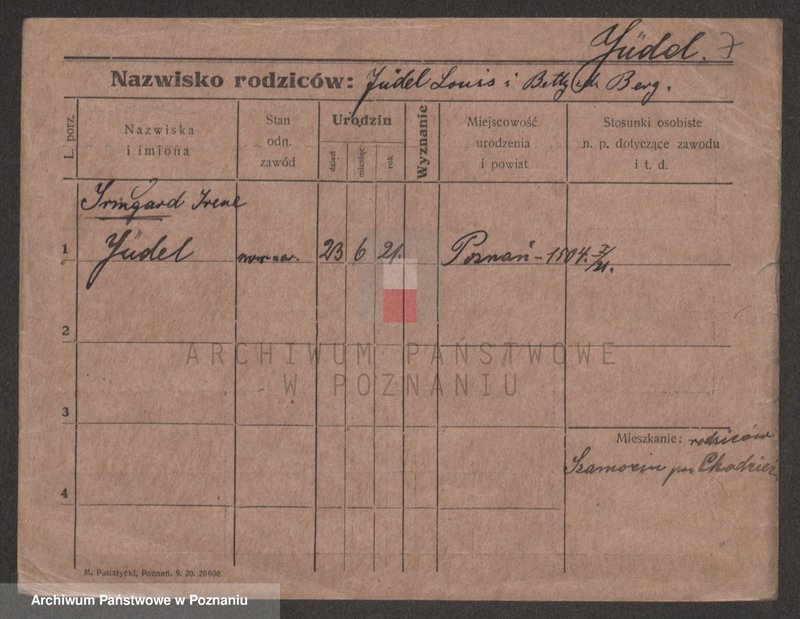 Jüdel. 7
Nazwisko rodziców: Jüdel Louis i Betty Berg.
L. porz.
Nazwiska
i imiona
Stan
odn.
zawód
Urodzin
dzień
miesiąc
rok
Wyznanie
Miejscowość
urodzenia
i powiat
Stosunki osobiste
n. p. dotyczące zawodu
i t. d.
Irmgard Irene
1 Jüdel 23 6 21. Poznań - 1804. I/21.
2
ARCHIWUM PAŃSTWOWE
W POZNANIU
3
Mieszkanie: rodziców
Szamocin pow Chodzież
4
M. Putiatycki, Poznań. 9. 20. 20600.
Archiwum Państwowe w Poznaniu